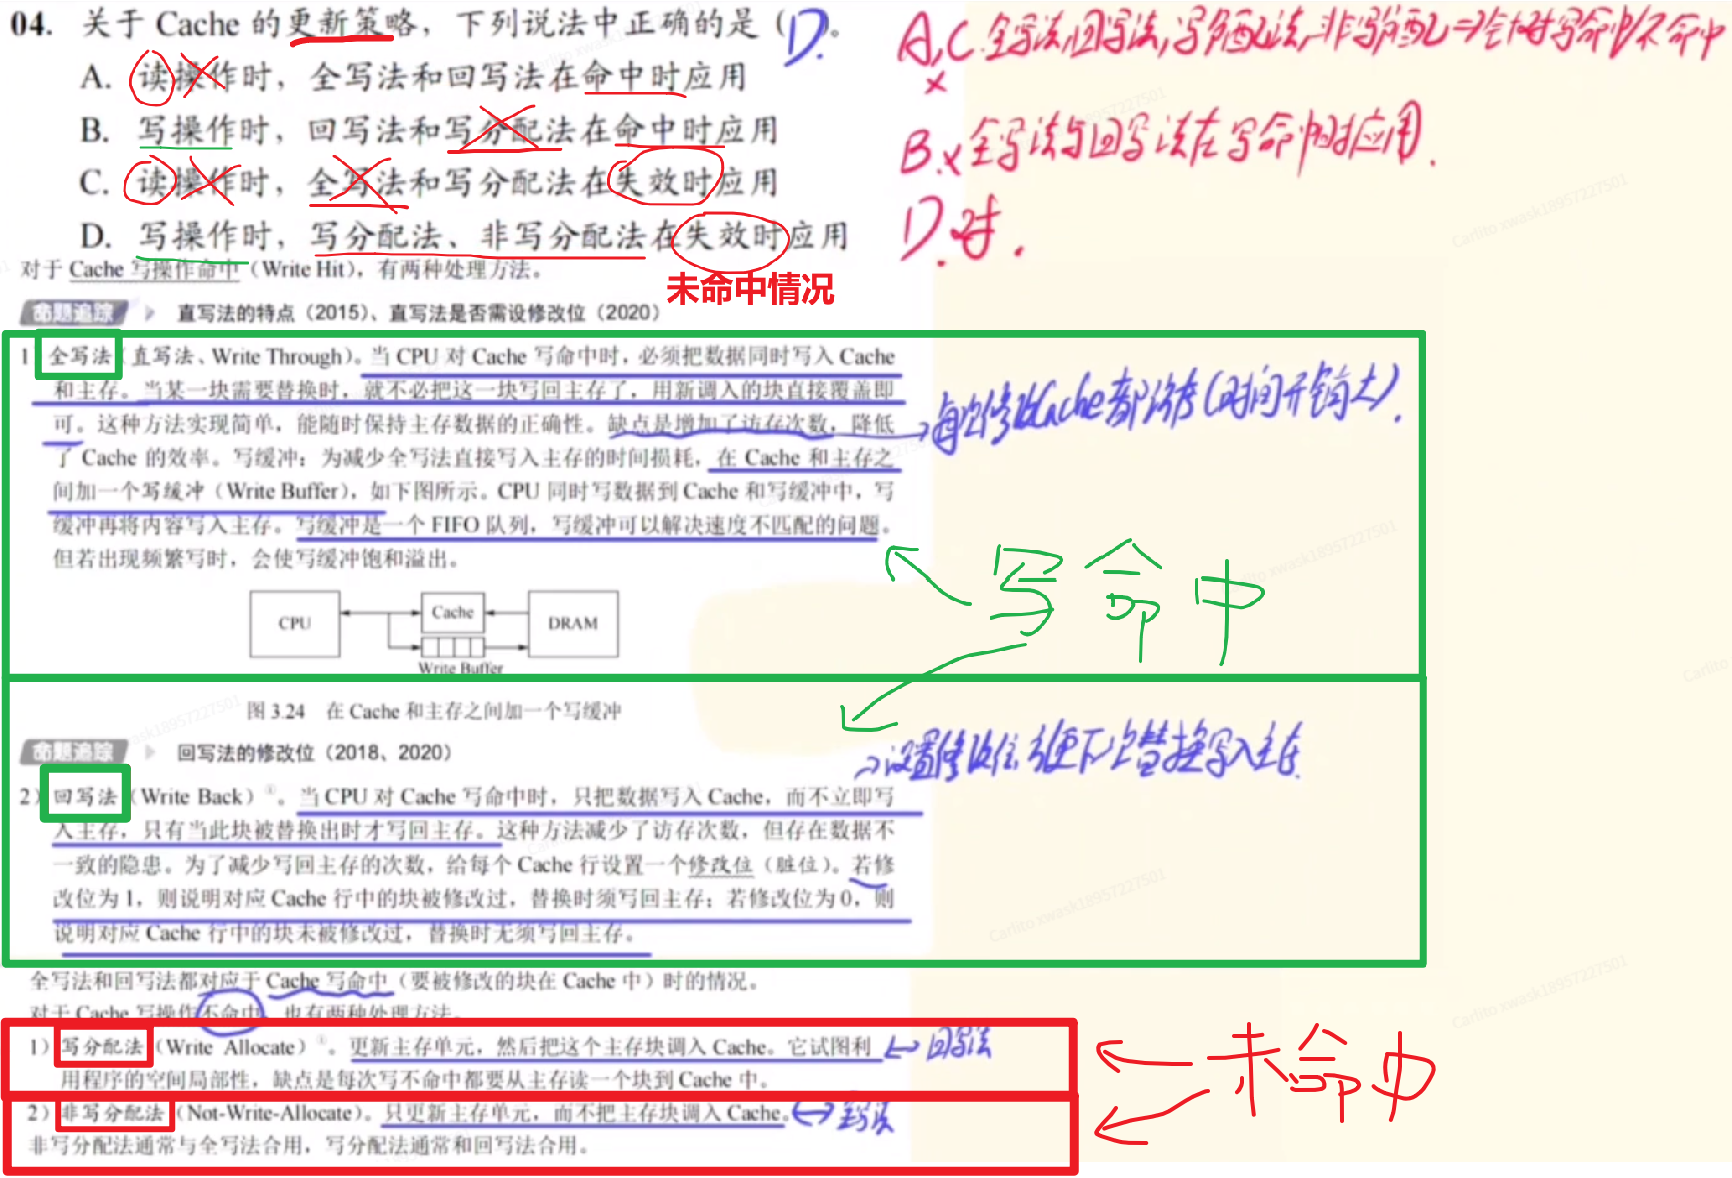 04. 关于 Cache 的更新策略，下列说法中正确的是（ D. 。
A. 读操作时，全写法和回写法在命中时应用
B. 写操作时，回写法和写分配法在命中时应用
C. 读操作时，全写法和写分配法在失效时应用
D. 写操作时，写分配法、非写分配法在失效时应用
A,C. 全写法,回写法,写分配法,非写分配⇒针对写命中/不命中
×
B.× 全写法与回写法在写命中时应用.
D.对.
未命中情况
对于 Cache 写操作命中（Write Hit），有两种处理方法。
命题追踪 直写法的特点（2015）、直写法是否需设修改位（2020）
1 全写法（直写法、Write Through）。当 CPU 对 Cache 写命中时，必须把数据同时写入 Cache
和主存。当某一块需要替换时，就不必把这一块写回主存了，用新调入的块直接覆盖即
可。这种方法实现简单，能随时保持主存数据的正确性。缺点是增加了访存次数，降低
了 Cache 的效率。写缓冲：为减少全写法直接写入主存的时间损耗，在 Cache 和主存之
间加一个写缓冲（Write Buffer），如下图所示。CPU 同时写数据到 Cache 和写缓冲中，写
缓冲再将内容写入主存。写缓冲是一个 FIFO 队列，写缓冲可以解决速度不匹配的问题。
但若出现频繁写时，会使写缓冲饱和溢出。
→每次修改Cache都访存(时间开销大).
写命中
CPU
Cache
DRAM
Write Buffer
图 3.24 在 Cache 和主存之间加一个写缓冲
命题追踪 回写法的修改位（2018、2020）
→设置修改位,方便下次替换写入主存.
2）回写法（Write Back）①。当 CPU 对 Cache 写命中时，只把数据写入 Cache，而不立即写
入主存，只有当此块被替换出时才写回主存。这种方法减少了访存次数，但存在数据不
一致的隐患。为了减少写回主存的次数，给每个 Cache 行设置一个修改位（脏位）。若修
改位为 1，则说明对应 Cache 行中的块被修改过，替换时须写回主存；若修改位为 0，则
说明对应 Cache 行中的块未被修改过，替换时无须写回主存。
全写法和回写法都对应于 Cache 写命中（要被修改的块在 Cache 中）时的情况。
对于 Cache 写操作不命中，也有两种处理方法。
1）写分配法（Write Allocate）①。更新主存单元，然后把这个主存块调入 Cache。它试图利
用程序的空间局部性，缺点是每次写不命中都要从主存读一个块到 Cache 中。
↔ 回写法
未命中
2）非写分配法（Not-Write-Allocate）。只更新主存单元，而不把主存块调入 Cache。
↔ 全写法
非写分配法通常与全写法合用，写分配法通常和回写法合用。
Carlito xwask18957227501